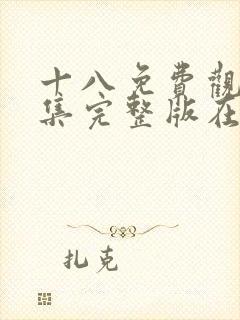 十八免費觀
集完整版在
扎克